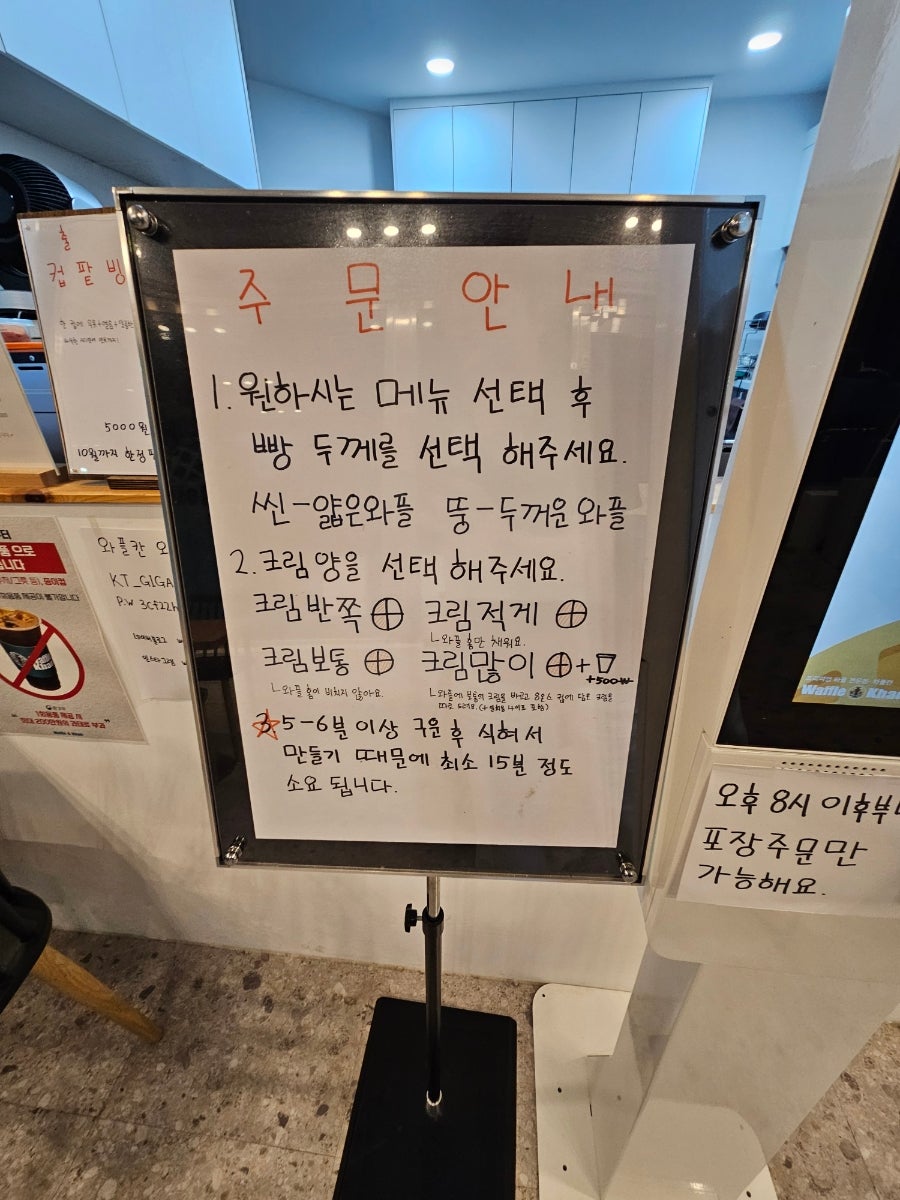 주 문 안 내
1. 원하시는 메뉴 선택 후
빵 두께를 선택 해주세요.
씬-얇은와플 뚱-두꺼운와플
2. 크림양을 선택해주세요.
크림반쪽 크림적게
ㄴ와플 홈만 채워요.
크림보통 크림많이 +
+500₩
ㄴ와플 홈이 비치지 않아요.
3. 5-6분 이상 구운 후 식혀서
만들기 때문에 최소 15분 정도
소요 됩니다.
컵 팥 빙
5000원
10월까지 한정
와플칸
KT_GIGA
오후 8시 이후부
포장주문만
가능해요.
Waffle Khan